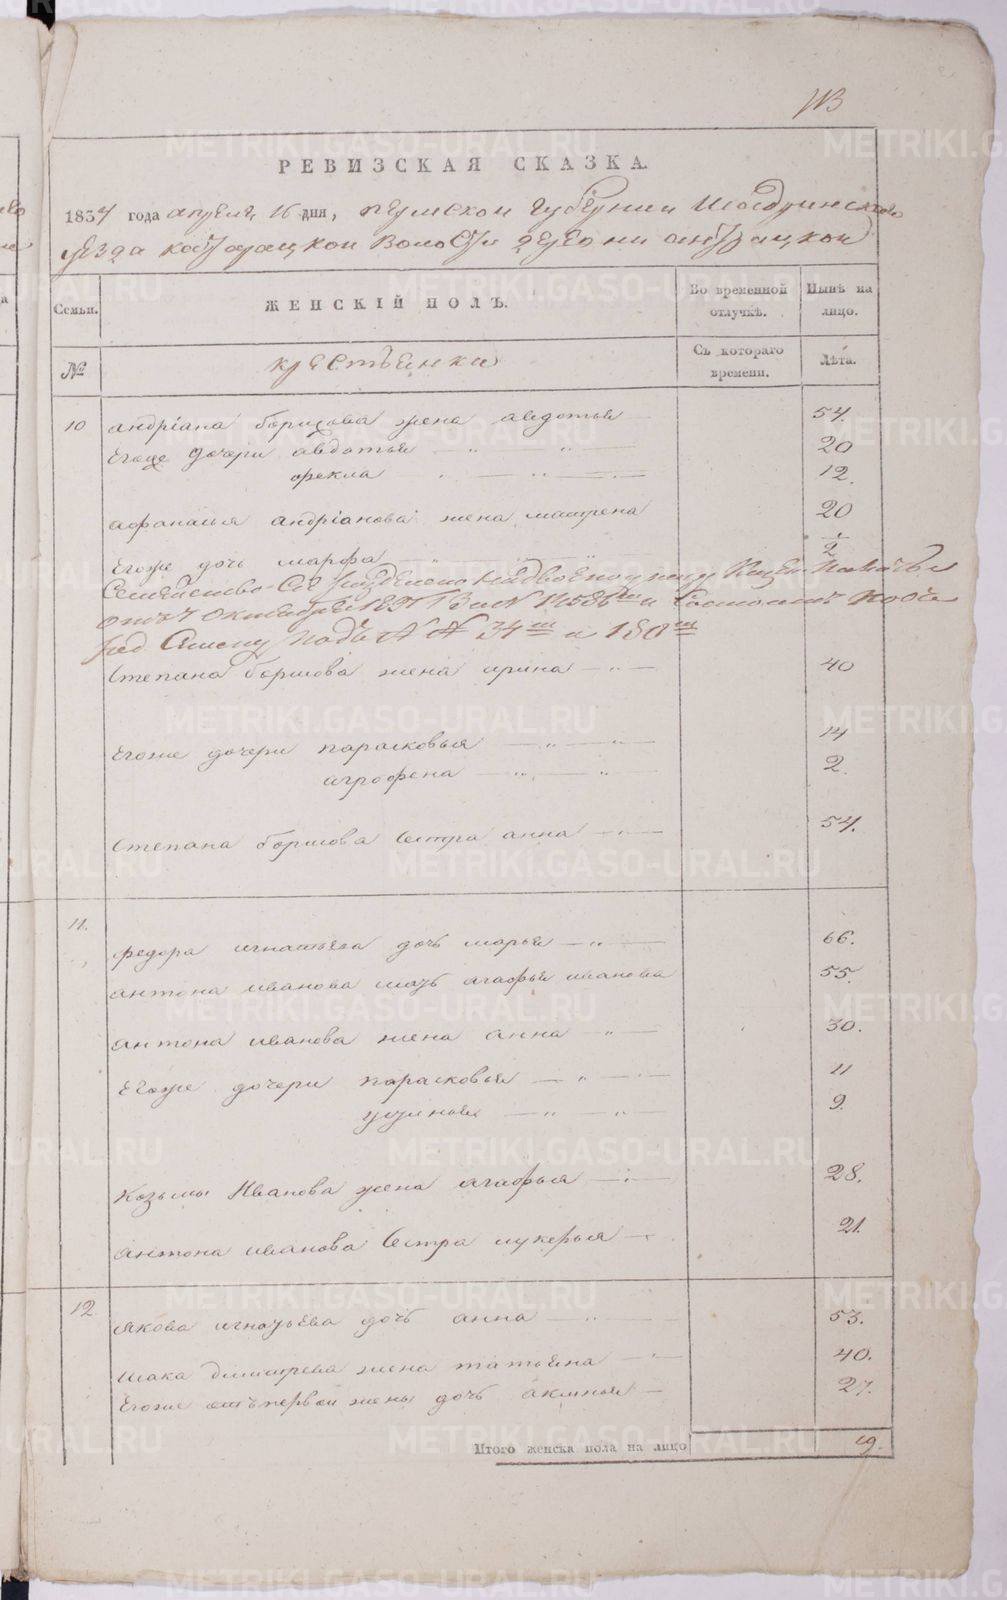 РЕВИЗСКАЯ СКАЗКА.
1834 года апреля 16 дня, пермской губернии Шадринскаго
уезда волости деревни
Семьи.
ЖЕНСКІЙ ПОЛЪ.
Во временной отлучкѣ.
Нынѣ на лицо.
№
крестьянки
Съ котораго времени.
Лѣта.
10 андріана борисова жена авдотья 54.
Егоже дочери авдотья 20
фекла 12.
афанасья андріанова жена матрена 20
Егоже дочь марфа 1/2
Семейство Сіе разделено
34 и 180
Степана борисова жена ирина 40
Егоже дочери парасковья 14
агрофена 2.
Степана борисова сестра анна 54.
11. федора игнатьева дочь марья 66.
антона иванова мать агафья иванова 55.
антона иванова жена анна 30.
Егоже дочери парасковья 11
устинья 9.
Козьмы Иванова жена агафья 28.
антона иванова сестра лукерья 21.
12. Якова игнатьева дочь анна 53.
исака дмитрева жена татьяна 40.
Егоже отъ первой жены дочь акилина 27.
Итого женска пола на лицо 19.
METRIKI.GASO-URAL.RU